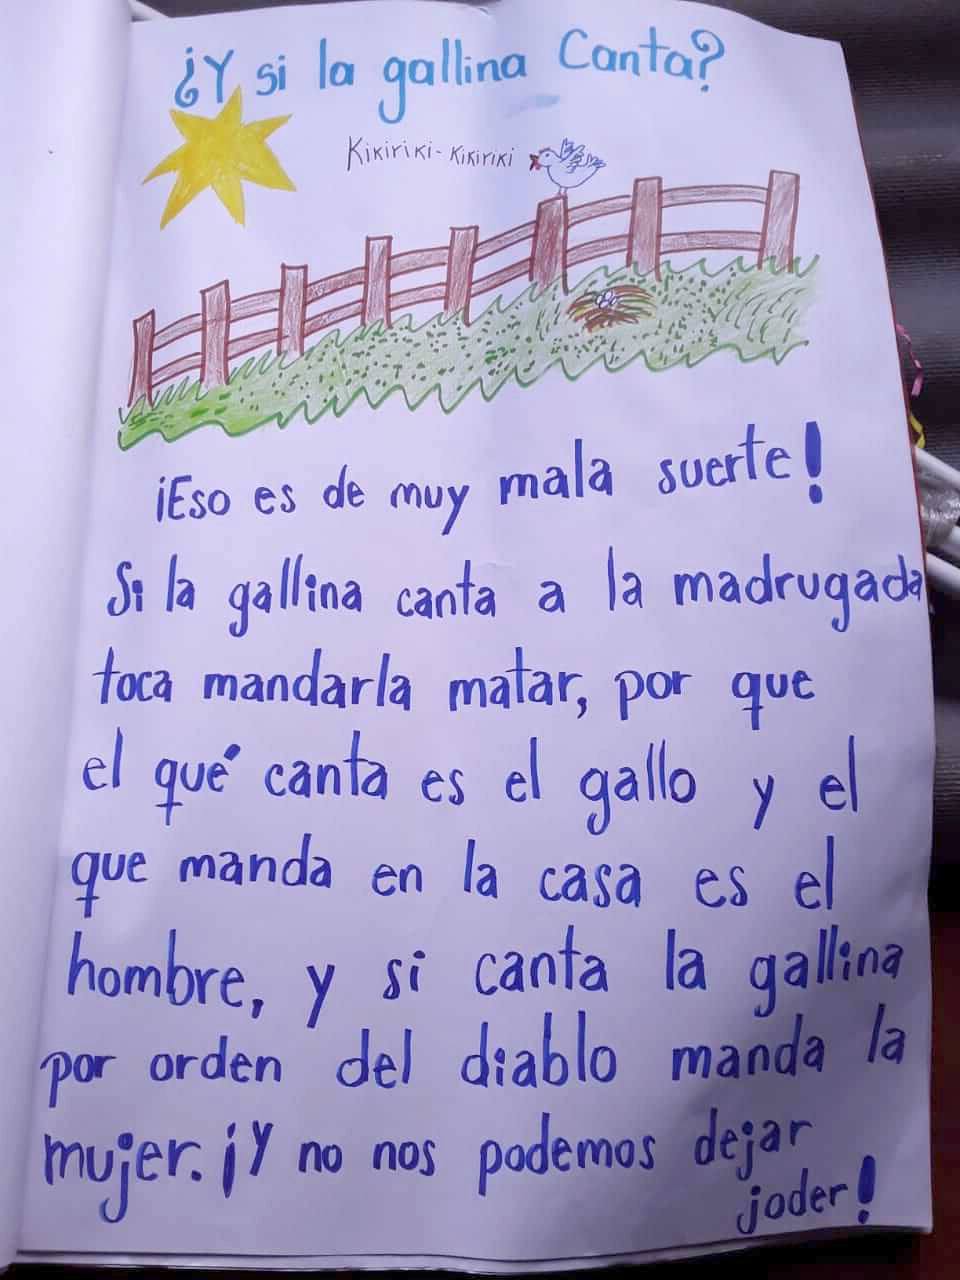 ¿Y si la gallina Canta?
Kikiriki- Kikiriki
¡Eso es de muy mala suerte!
Si la gallina canta a la madrugada
toca mandarla matar, por que
el qué canta es el gallo y el
que manda en la casa es el
hombre, y si canta la gallina
por orden del diablo manda la
mujer. ¡Y no nos podemos dejar
joder!